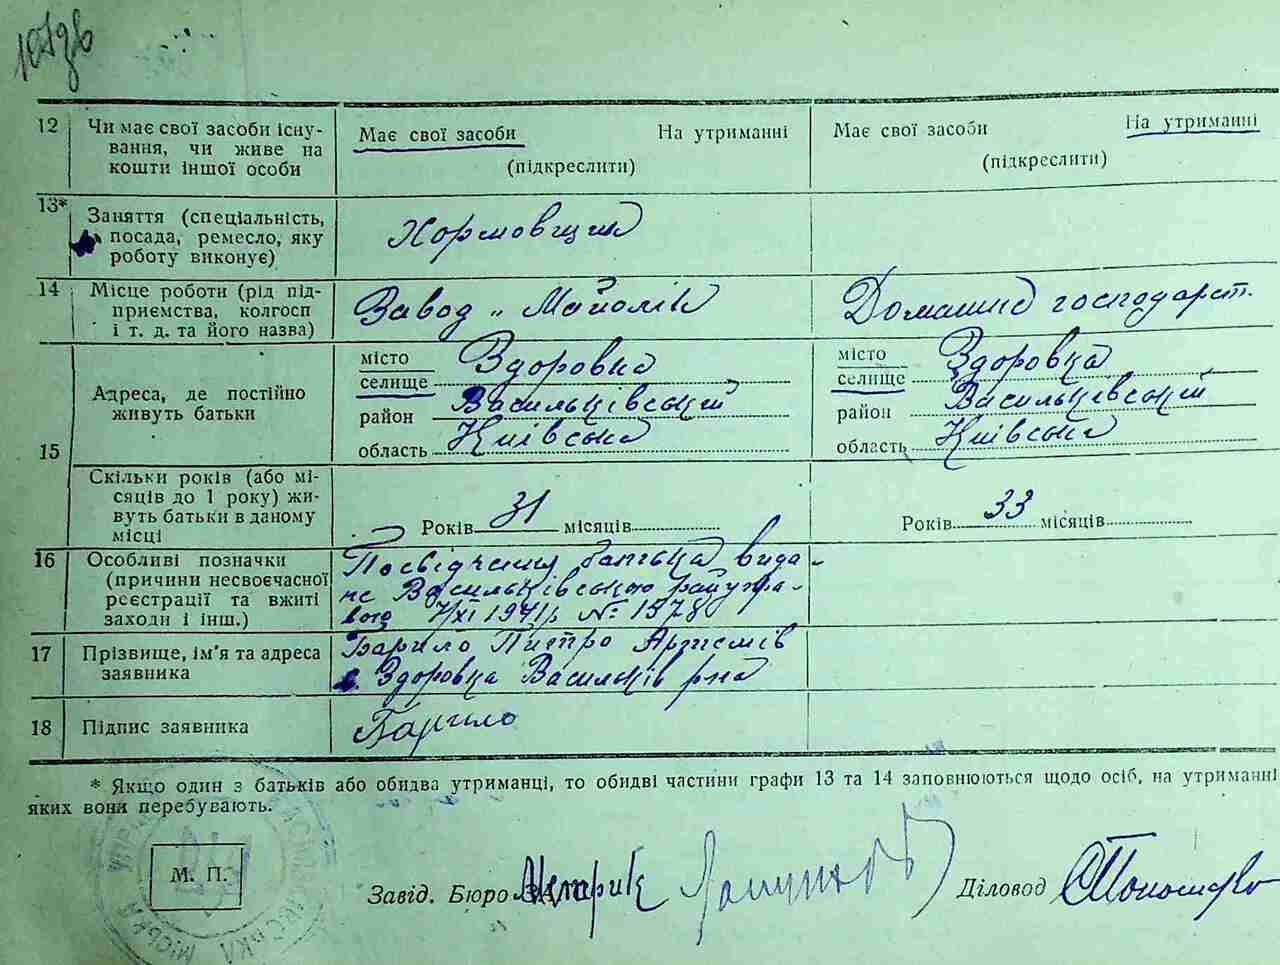 107зв
12 Чи має свої засоби існу-
вання, чи живе на
кошти іншої особи
Має свої засоби На утриманні
(підкреслити)
Має свої засоби На утриманні
(підкреслити)
13* Заняття (спеціальність,
посада, ремесло, яку
роботу виконує)
Хормовщик
14 Місце роботи (рід під-
приємства, колгосп
і т. д. та його назва)
Завод „ Майолік
Домашнє господарст.
15 Адреса, де постійно
живуть батьки
місто
селище Здоровка
район Васильківський
область Київська
місто
селище Здоровка
район Васильківський
область Київська
Скільки років (або мі-
сяців до 1 року) жи-
вуть батьки в даному
місці
Років 31 місяців
Років 33 місяців
16 Особливі позначки
(причини несвоєчасної
реєстрації та вжиті
заходи і інш.)
Посвідчення батька вида-
не Васильківською райупра-
вою 7/XI 1941р № 1578
17 Прізвище, ім'я та адреса
заявника
Барило Питро Артемів
с. Здоровка Васильків р-на
18 Підпис заявника
Барило
* Якщо один з батьків або обидва утриманці, то обидві частини графи 13 та 14 заповнюються щодо осіб, на утриманні
яких вони перебувають.
М. П.
Завід. Бюро ЗАГС Метрик
Діловод